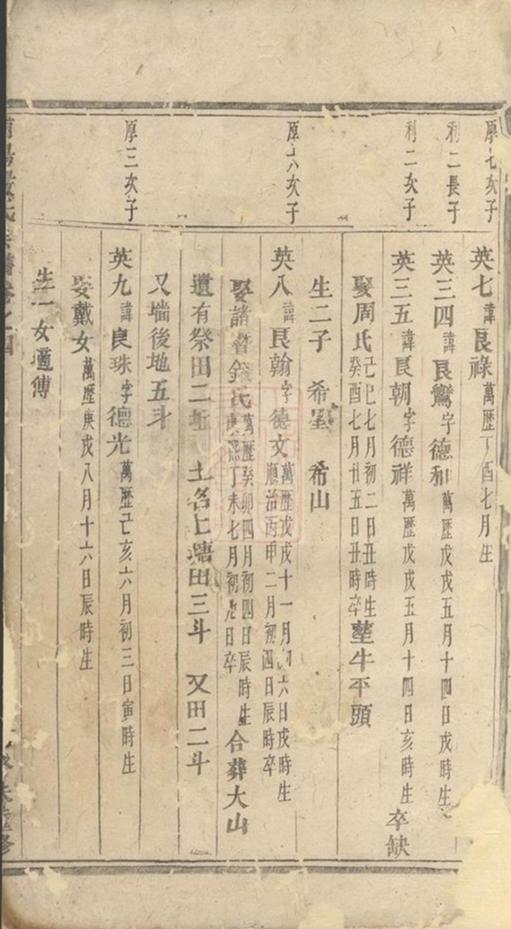 厚七次子
英七諱良祿萬歷丁酉七月生
利二長子
英三四諱良鸞字德和萬歷戊戌五月十四日戌時生
利二次子
英三五諱良朝字德祥萬歷戊戌五月十四日亥時生卒缺
娶周氏己巳七月初二日丑時生癸酉七月廿五日丑時卒塟牛平頭
生二子 希聖 希山
厚六次子
英八諱良翰字德文萬歷戊戌十一月初六日戌時生順治丙申二月初四日辰時卒
娶諸暨錢氏萬歷癸卯四月初四日辰時生康熙丁未七月初九日卒合葬大山
遺有祭田二坵 土名上塘田三斗 又田二斗
又墻後地五斗
厚三次子
英九諱良珠字德光萬歷己亥六月初三日寅時生
娶戴女萬歷庚戌八月十六日辰時生
生一女適傅